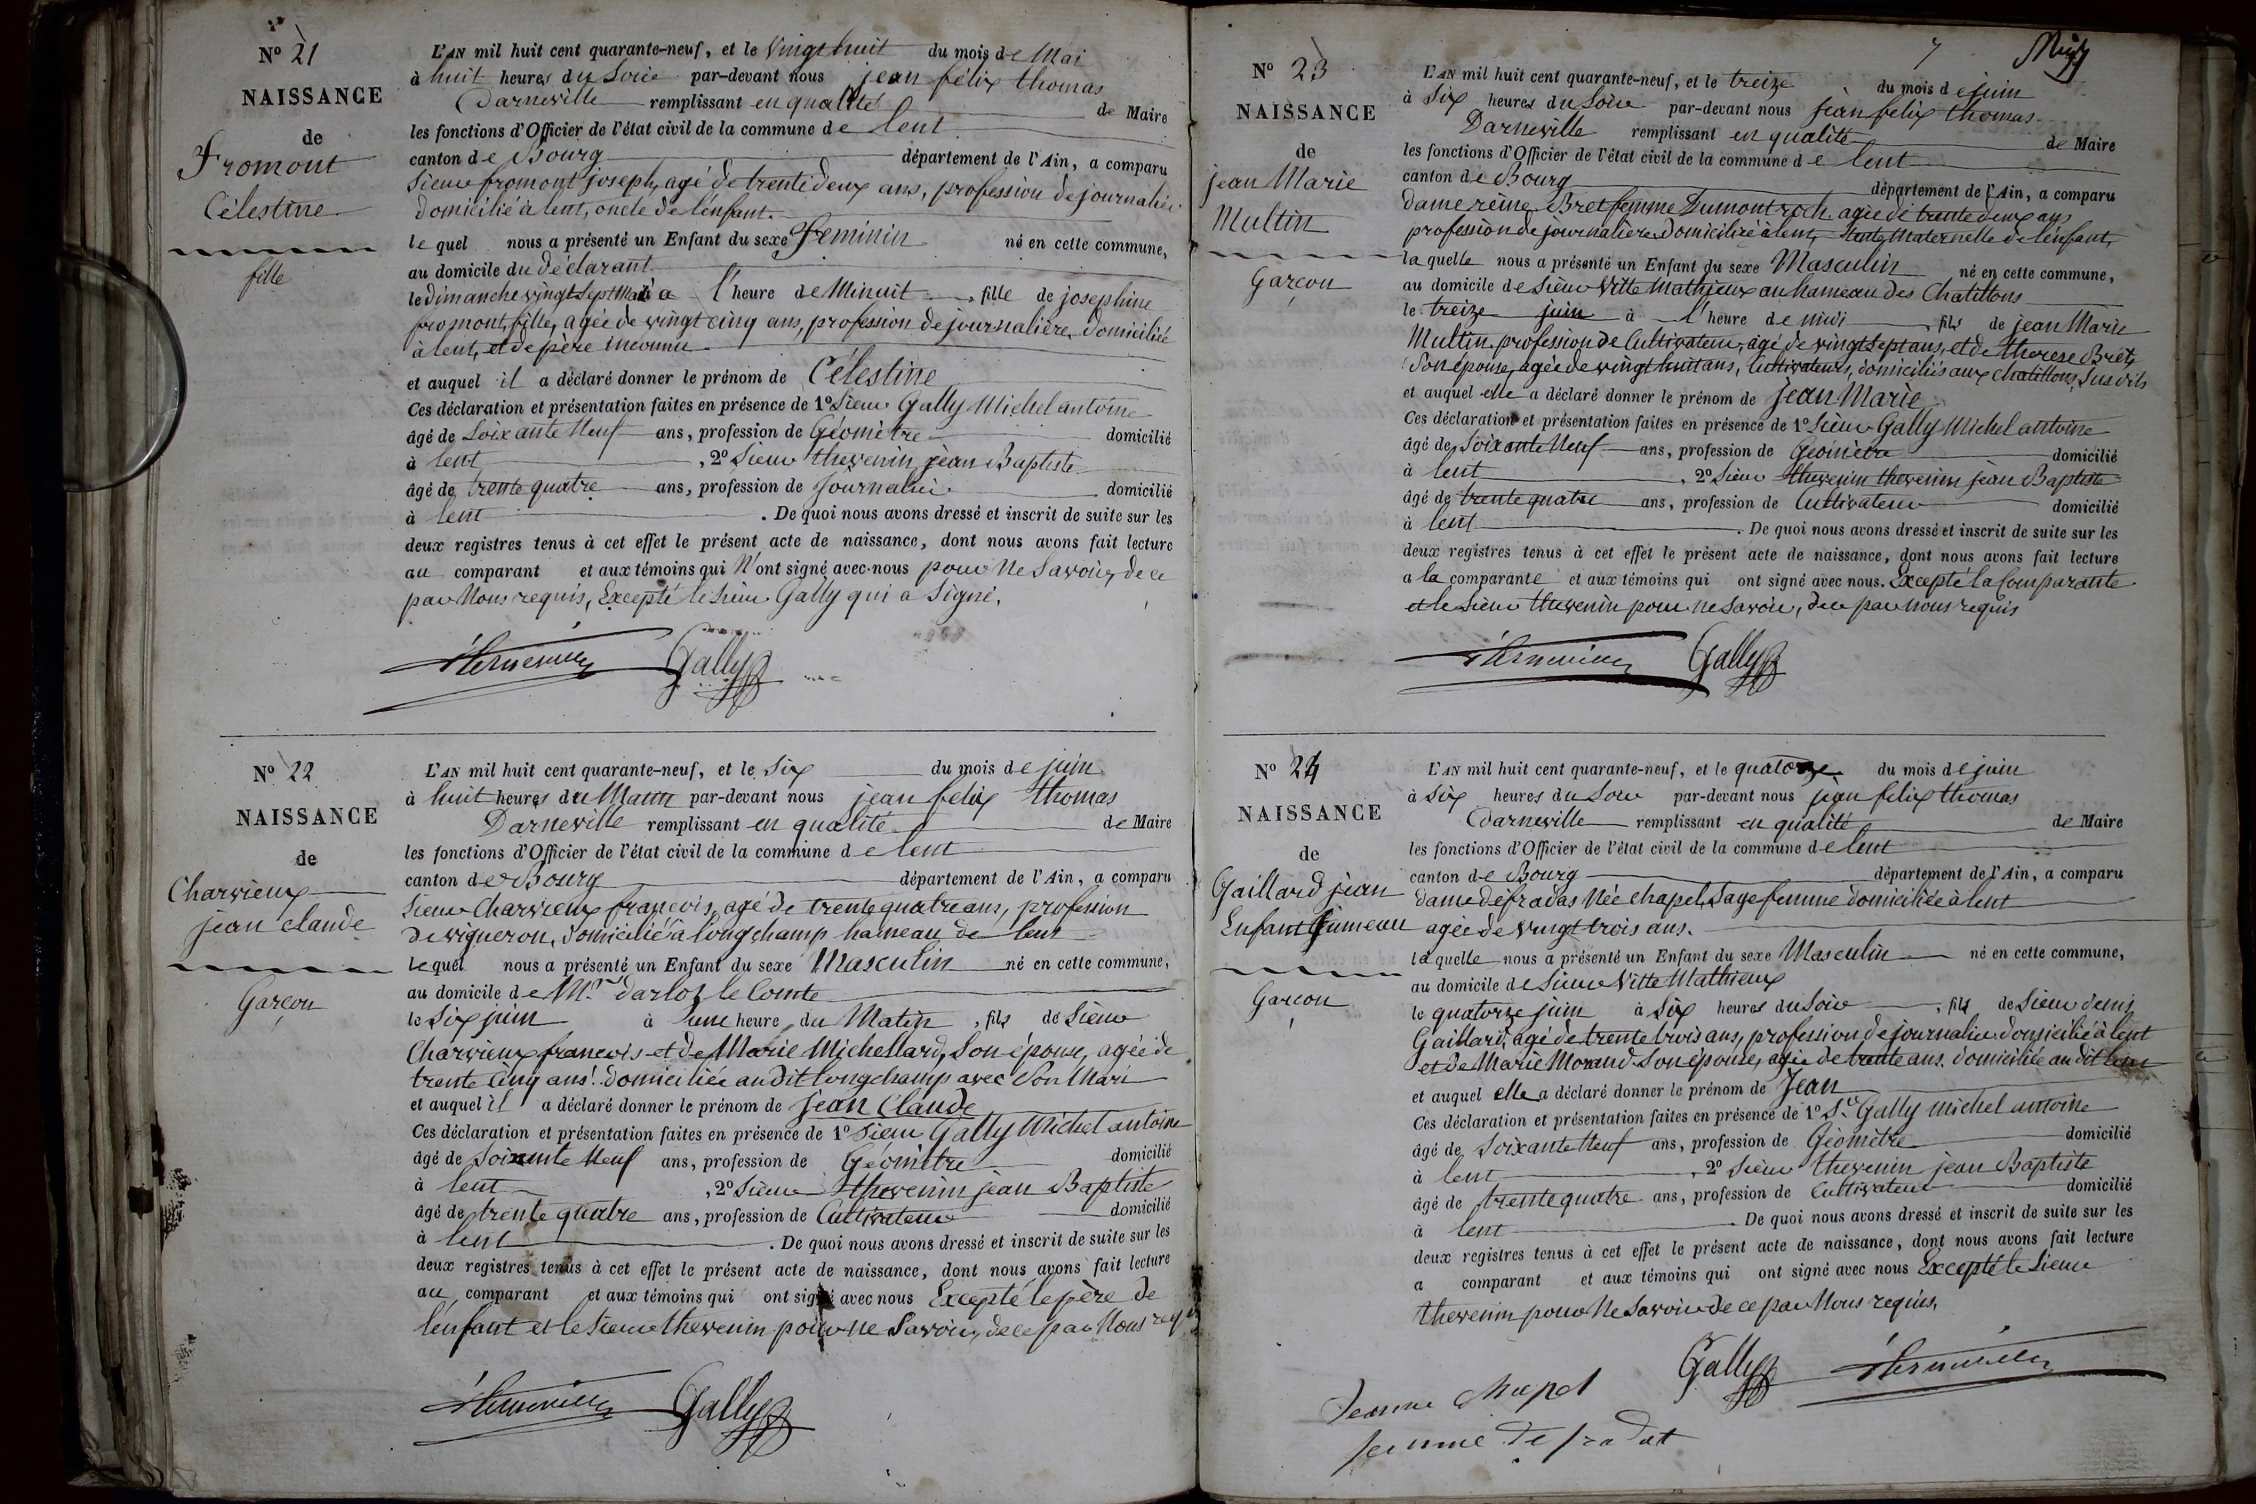 N° 21
NAISSANCE
de
Fromont
Célestine
fille
L'AN mil huit cent quarante-neuf, et le vingt huit du mois de Mai
à huit heures du Soir par-devant nous jean félix thomas
Darneville remplissant en qualité de Maire
les fonctions d'Officier de l'état civil de la commune de lent
canton de Bourg département de l'Ain, a comparu
Sieur fromont joseph, agé de trente deux ans, profession de journalier
domicilié à lent, oncle de l'enfant.
le quel nous a présenté un Enfant du sexe Feminin né en cette commune,
au domicile du déclarant
le dimanche vingt Sept Mai à l'heure de Minuit, fille de josephine
fromont, fille, agée de vingt cinq ans, profession de journalière, domiciliée
à lent, et de père inconnu
et auquel il a déclaré donner le prénom de Célestine
Ces déclaration et présentation faites en présence de 1° Sieur Gally Michel antoine
âgé de Soixante Neuf ans, profession de Géomètre domicilié
à lent, 2° Sieur thevenin jean Baptiste
âgé de trente quatre ans, profession de journalier domicilié
à lent. De quoi nous avons dressé et inscrit de suite sur les
deux registres tenus à cet effet le présent acte de naissance, dont nous avons fait lecture
au comparant et aux témoins qui N'ont signé avec nous pour Ne Savoir, de ce
par Nous requis, Excepté le Sieur Gally qui a Signé.
Gally
N° 22
NAISSANCE
de
Charvieux
jean claude
Garçon
L'AN mil huit cent quarante-neuf, et le Six du mois de juin
à huit heures du Matin par-devant nous jean felix thomas
Darneville remplissant en qualité de Maire
les fonctions d'Officier de l'état civil de la commune de lent
canton de Bourg département de l'Ain, a comparu
Sieur Charvieux françois, agé de trente quatre ans, profession
de vigneron, domicilié à longchamp hameau de lent
le quel nous a présenté un Enfant du sexe Masculin né en cette commune,
au domicile de Mr. darloz le Comte
le Six juin à une heure du Matin, fils de Sieur
Charvieux françois et de Marie Michellard, Son épouse, agée de
trente Cinq ans. domiciliée au dit longchamp avec Son Mari
et auquel il a déclaré donner le prénom de jean Claude
Ces déclaration et présentation faites en présence de 1° Sieur Gally Michel antoine
âgé de Soixante Neuf ans, profession de Géomètre domicilié
à lent, 2° Sieur thevenin jean Baptiste
âgé de trente quatre ans, profession de Cultivateur domicilié
à lent. De quoi nous avons dressé et inscrit de suite sur les
deux registres tenus à cet effet le présent acte de naissance, dont nous avons fait lecture
au comparant et aux témoins qui ont signé avec nous Excepté le père de
l'enfant et le Sieur thevenin pour ne Savoir, de ce par Nous requis
Gally
7
N° 23
NAISSANCE
de
jean Marie
Multin
Garçon
L'AN mil huit cent quarante-neuf, et le treize du mois de juin
à Six heures du Soir par-devant nous jean felix thomas
Darneville remplissant en qualité de Maire
les fonctions d'Officier de l'état civil de la commune de lent
canton de Bourg département de l'Ain, a comparu
dame reine Bret femme Dumont roch agée de trente deux ans
profession de journalière domiciliée à lent, tante Maternelle de l'enfant,
la quelle nous a présenté un Enfant du sexe Masculin né en cette commune,
au domicile de Sieur Vitte Mathieux au hameau des Chatillons
le treize juin à l'heure de midi, fils de jean Marie
Multin profession de Cultivateur, agé de vingt Sept ans, et de therese Bret,
Son épouse, agée de vingt huit ans, Cultivateurs, domiciliés aux chatillons, Susdits
et auquel elle a déclaré donner le prénom de jean Marie
Ces déclaration et présentation faites en présence de 1° Sieur Gally Michel antoine
âgé de Soixante Neuf ans, profession de Géomètre domicilié
à lent, 2° Sieur thevenin thevenin jean Baptiste
âgé de trente quatre ans, profession de Cultivateur domicilié
à lent. De quoi nous avons dressé et inscrit de suite sur les
deux registres tenus à cet effet le présent acte de naissance, dont nous avons fait lecture
a la comparante et aux témoins qui ont signé avec nous. Excepté la Comparante
et le Sieur thevenin pour ne Savoir, de ce par nous requis
Gally
N° 24
NAISSANCE
de
Gaillard jean
Enfant jumeau
Garçon
L'AN mil huit cent quarante-neuf, et le quatorze du mois de juin
à Six heures du Soir par-devant nous jean felix thomas
Darneville remplissant en qualité de Maire
les fonctions d'Officier de l'état civil de la commune de lent
canton de Bourg département de l'Ain, a comparu
dame défradas Née chapel, Sage femme domiciliée à lent
agée de vingt trois ans.
la quelle nous a présenté un Enfant du sexe Masculin né en cette commune,
au domicile de Sieur Vitte Mathieux
le quatorze juin à Six heures du Soir, fils de Sieur denis
Gaillard, agé de trente trois ans, profession de journalier domicilié à lent
et de Marie Morand Son épouse, agée de trente ans. domiciliée au dit lent
et auquel elle a déclaré donner le prénom de Jean
Ces déclaration et présentation faites en présence de 1° Sr Gally michel antoine
âgé de Soixante Neuf ans, profession de Géomètre domicilié
à lent, 2° Sieur thevenin jean Baptiste
âgé de trente quatre ans, profession de Cultivateur domicilié
à lent. De quoi nous avons dressé et inscrit de suite sur les
deux registres tenus à cet effet le présent acte de naissance, dont nous avons fait lecture
a comparant et aux témoins qui ont signé avec nous Excepté le Sieur
thevenin pour Ne Savoir de ce par Nous requis,
Gally
Jeanne Chapel
femme Defradat